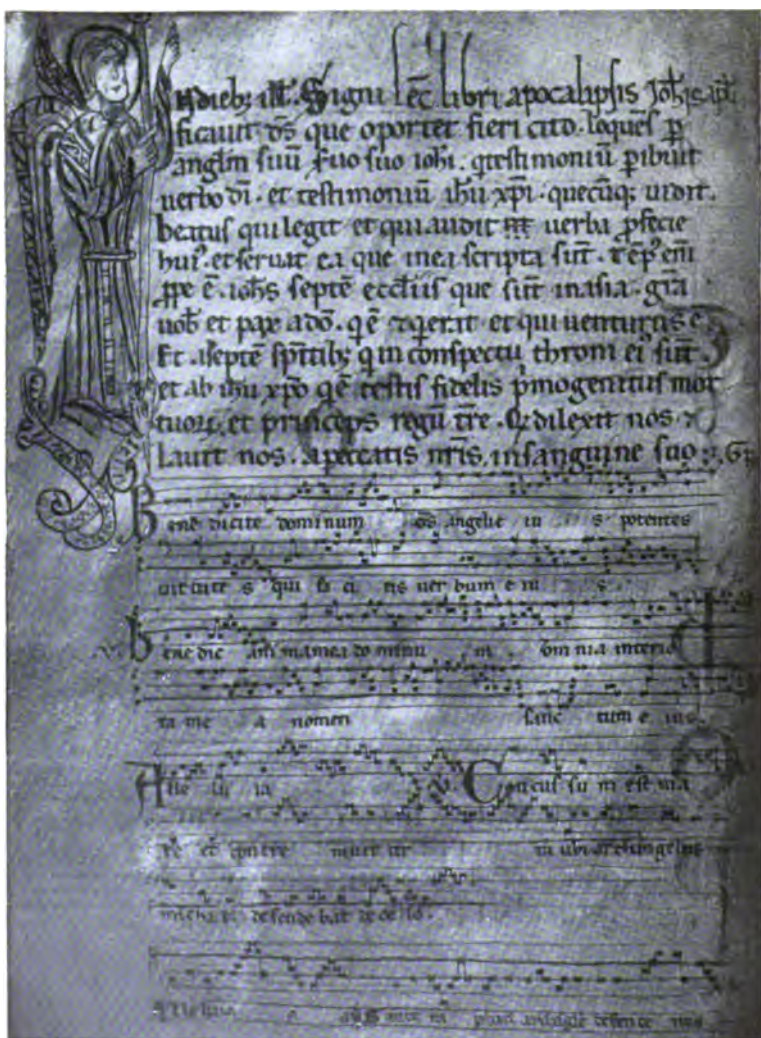 In dieb; ill. Signi lec libri apocalipsis Joh̄is apl̄i
ficauit dſ̄ que oportet fieri cito. loquēs p̄
anglm̄ suū suo ioh̄i. q testimoniū p̄ibuit
uerbo dī. et testimoniū ih̄u xp̄i. quecūq; uidit.
beatus qui legit et qui audit uerba p̄fecie
hui9. et seruat ea que in ea scripta sūt. tēp9 em̄
ppe ē. ioh̄s septē eccl̄iis que sūt in asia. gr̄a
uob̄ et pax a dō. q ē et q erat et qui uenturus ē.
Et a septē sp̄itib; q in conspectu throni ei9 sūt.
et ab ih̄u xp̄o q ē testis fidelis p̄mogenitus mor
tuoꝝ. et princeps regū tr̄e. Q dilexit nos ⁊
Lauit nos. a peccatis nr̄is. in sanguine suo. Gr̄
Bene dicite dominum oſ̄ angeli e iu s potentes
uir tute s qui fa ci tis uer bum e iu s.
V. bene dic ani ma mea do minu m om nia interio
ra me a nomen sanc tum e ius.
Alle lu ia V. Con cus su m est ma
re et con tre muit ter ra ubi archangelus
micha el de scende bat de ce lo.
Alle luia michael archangele defende nos